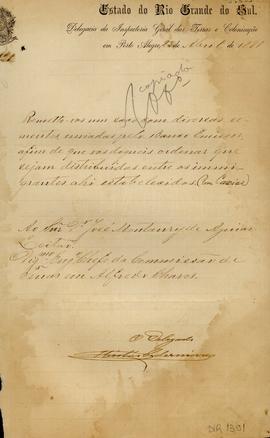 Estado do Rio Grande do Sul.
Delegacia da Inspectoria Geral das Terras e Colonisação
em Porto Alegre, de Abril de 1891
copiado
Remetto-vos um caixão com diversas se-
mentes enviadas pelo Banco Emissor,
afim de que vos digneis ordenar que
sejam distribuidas entre os immi-
grantes ahi estabelecidos
Ao Snr. Dr. José Montaury de Aguiar
Leitão
Engº Chefe da Commissão de
Terras em Alfredo Chaves
O Delegado
DIR 1301